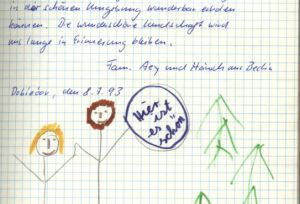 in der schönen Umgebung wunderbar erholen
können. Die wunderschöne Landschaft wird
uns lange in Erinnerung bleiben.
Fam. und aus Berlin
Dobločov, den 8.7.93
Hier
ist
es
schön